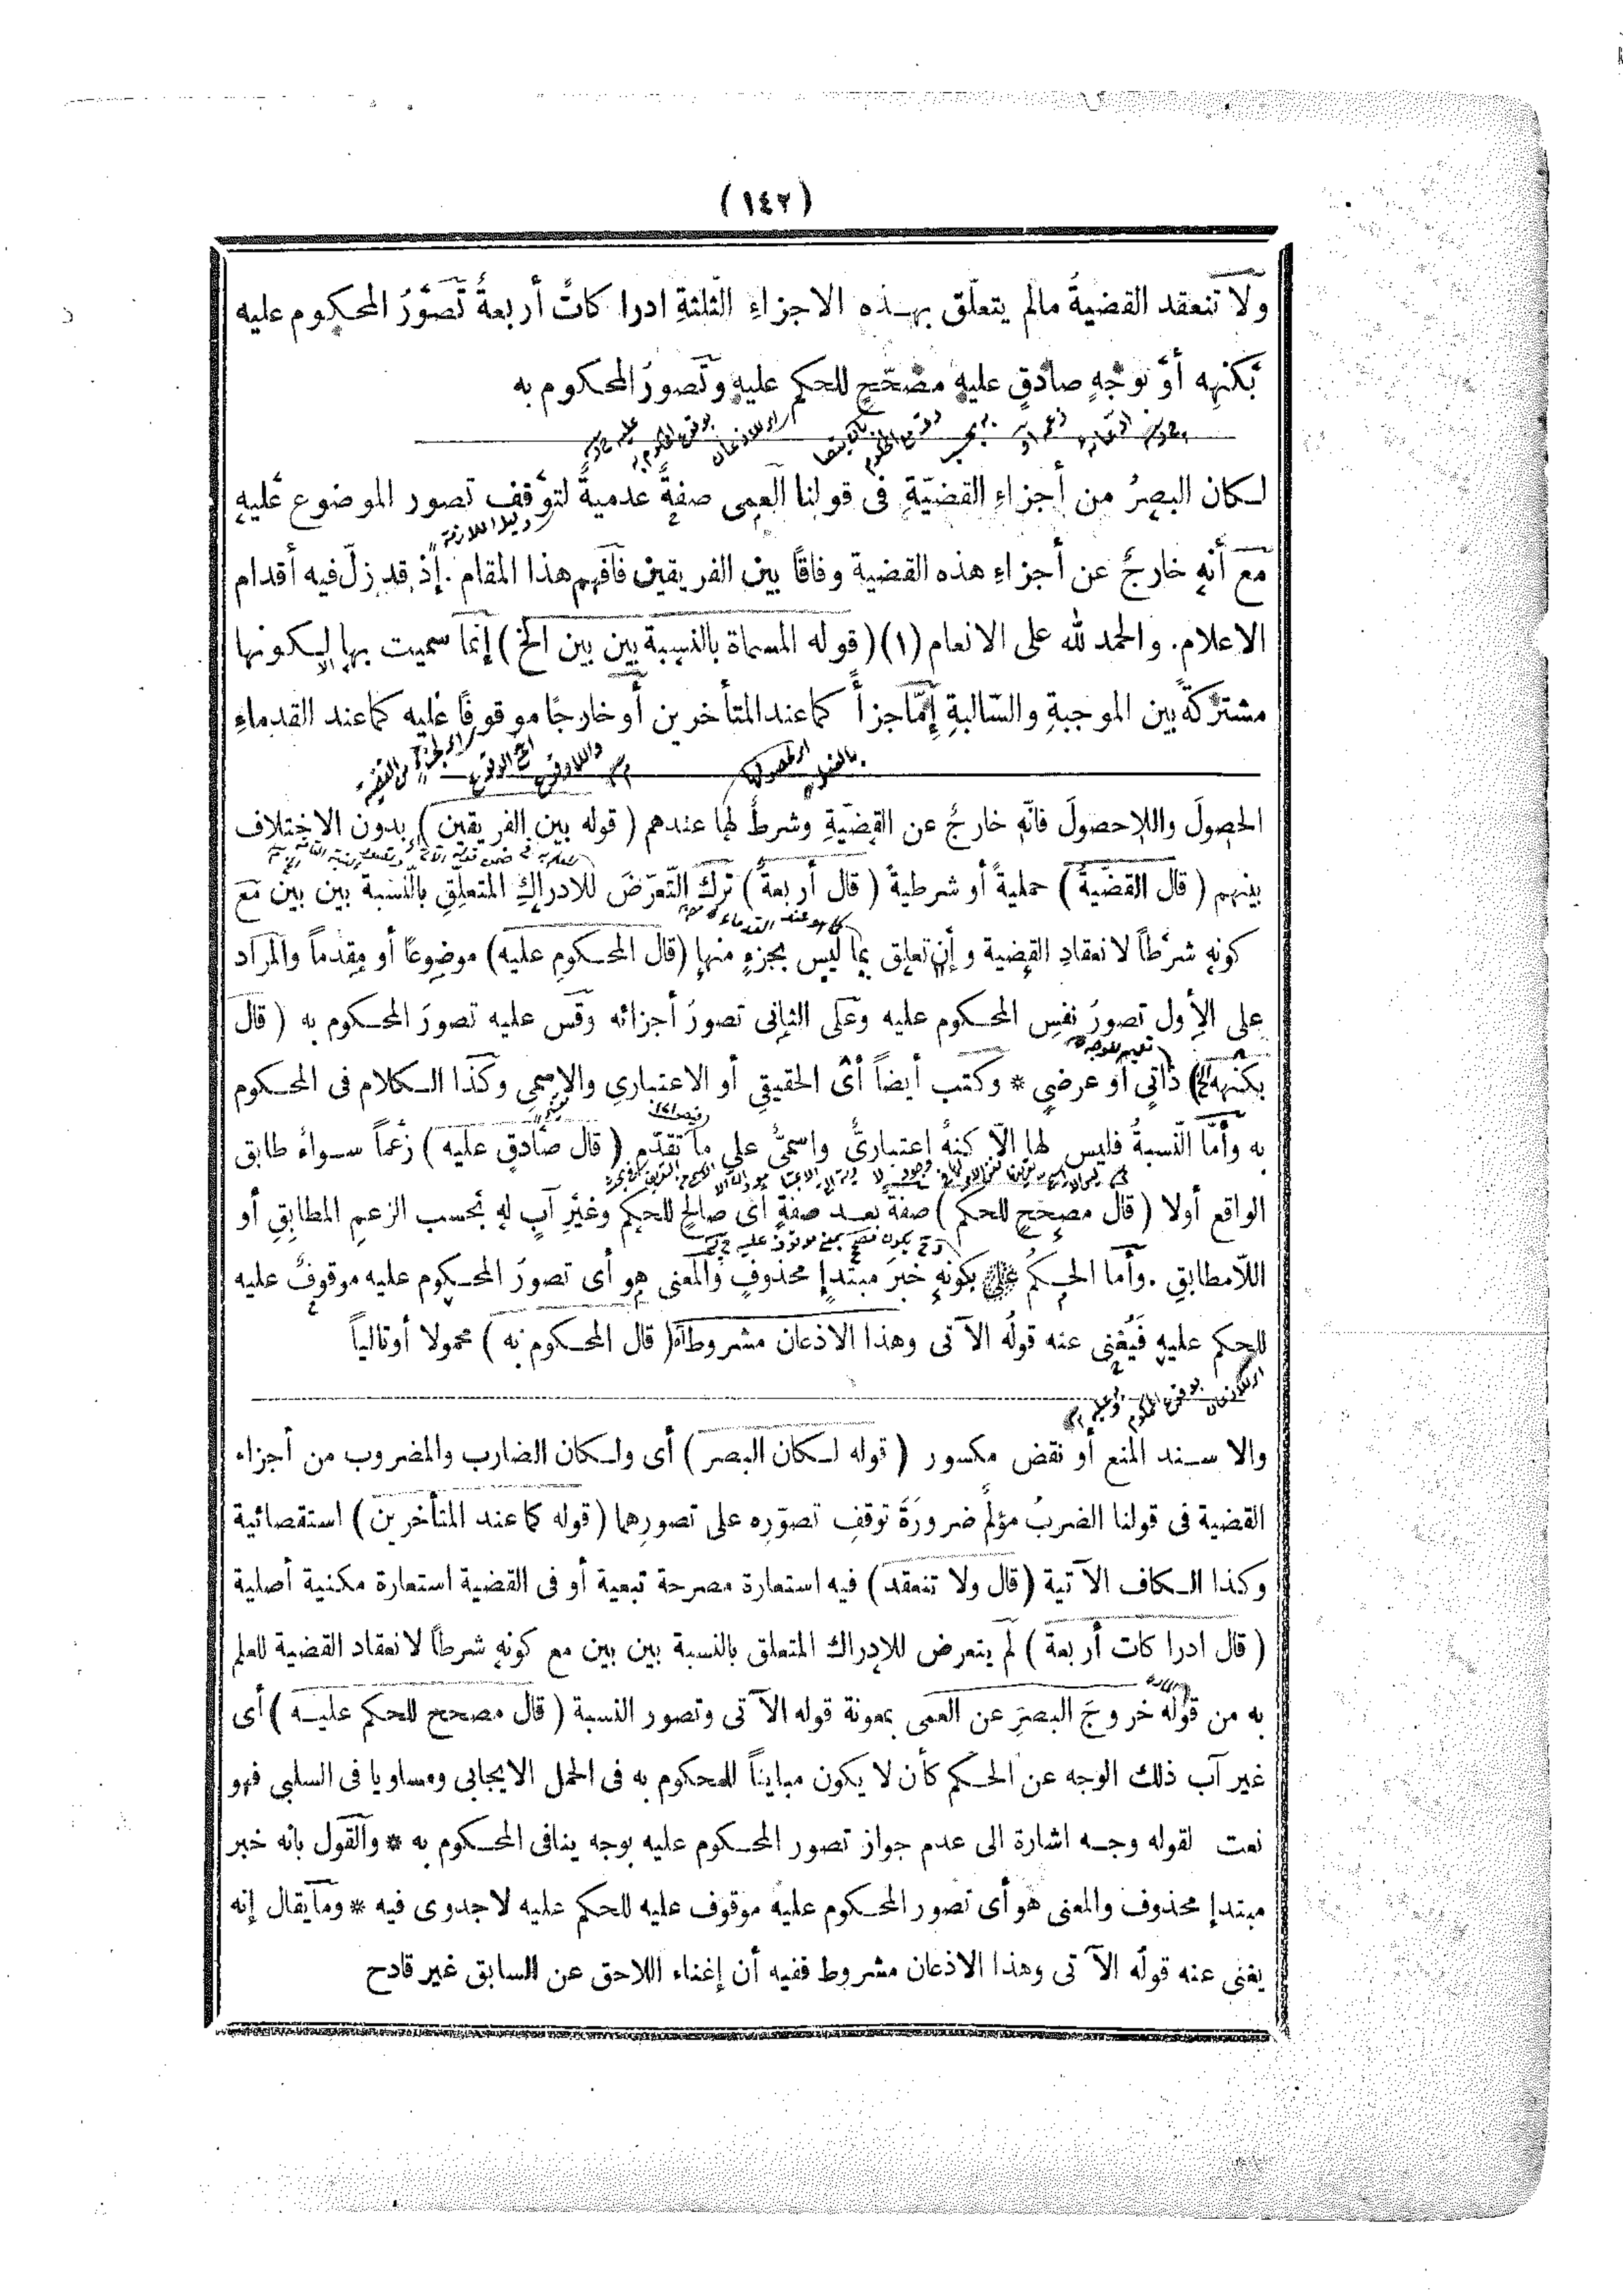 (١٤٢)
ولا تنعقد القضيةُ مالم يتعلّق بهذه الاجزاءِ الثلثةِ ادرا كاتٌ أربعةُ تَصَوُّرُ المحكوم عليه
بكنهِه أوْ بوجْهٍ صادقٍ عليهِ مصْحّحٍ للحكم عليهِ وتصورُ المحكوم به
لكان البصرُ من أجزاءِ القضيّةِ فى قولنا العمى صفةٌ عدميةٌ لتوَقف تصور الموضوع عليهِ
مع أنهِ خارجٌ عن أجزاءِ هذه القضية وفاقًا بين الفريقين فافهم هذا المقام . إذ قد زلّ فيه أقدام
الاعلام . والحمد لله على الانعام (١) (قوله المسماة بالنسبة بين بين الخ) إنما سميت بها لكونها
مشتركةً بين الموجبةِ والسّالبةِ إمّا جزأً كما عند المتأخرين أو خارجًا موقوفًا عليه كما عند القدماءِ
الحصولَ واللاحصولَ فانّه خارجٌ عن القضيّةِ وشرطٌ لها عندهم (قوله بين الفريقين) بدون الاختلاف
بينهم (قال القضيةُ) حمليةً أو شرطيةً (قال أربعةُ) تركَ التّعرّضَ للادراكِ المتعلِّقِ بالنسبة بين بين مَع
كونهِ شرْطاً لانعقادِ القضية وإن تعلق بما ليس بجزءٍ منها (قال المحكومِ عليه) موضوعًا أو مقدماً والمراد
على الأول تصورُ نفسِ المحكوم عليه وعلى الثانى تصورُ أجزائه وقس عليه تصورَ المحكوم به (قال
بكنهه الخ) ذاتي أو عرضي * وكتب أيضاً أى الحقيقي أو الاعتباري والاسمي وكذا الكلام فى المحكوم
به وأمّا النّسبةُ فليس لها الاّ كنهٌ اعتباريٌّ واسميٌّ على ما تقدّم (قال صادقٍ عليه) زعْماً سواءٌ طابق
الواقع أولا (قال مصححٍ للحكم) صفةٌ بعد صفةٍ أى صالحٍ للحكم وغيْرِ آبٍ لهِ بحسب الزعمِ المطابقِ أو
اللاّمطابقِ . وأما الحكمُ بكونهِ خبرَ مبتدإٍ محذوفٍ والمعنى هو أى تصورُ المحكوم عليه موقوفٌ عليه
للحكم عليهِ فيُغْنِى عنه قولُه الآتى وهذا الاذعان مشروط اه (قال المحكوم به) محمولا أو تالياً
والا سند المنع أو نقض مكسور (قوله لكان البصر) أى ولكان الضارب والمضروب من أجزاء
القضية فى قولنا الضربُ مؤلمٌ ضرورَةَ توقفِ تصوّرِه على تصورِهما (قوله كما عند المتأخرين) استقصائية
وكذا الكاف الآتية (قال ولا تنعقد) فيه استعارة مصرحة تبعية أو فى القضية استعارة مكنية أصلية
(قال ادرا كات أربعة) لم يتعرض للادراك المتعلق بالنسبة بين بين مع كونهِ شرطاً لانعقاد القضية للعلم
به من قوله خروجَ البصرِ عن العمى بمعونة قوله الآتى وتصور النسبة (قال مصحح للحكم عليه) أى
غير آب ذلك الوجه عن الحكم كأن لا يكون مبايناً للمحكوم به فى الحمل الايجابى ومساويا فى السلبى فهو
نعت لقوله وجه اشارة الى عدم جواز تصور المحكوم عليه بوجه ينافى المحكوم به * والقول بانه خبر
مبتدإ محذوف والمعنى هو أى تصور المحكوم عليه موقوف عليه للحكم عليه لاجدوى فيه * وما يقال إنه
يغنى عنه قوله الآتى وهذا الاذعان مشروط ففيه أن إغناء اللاحق عن السابق غير قادح